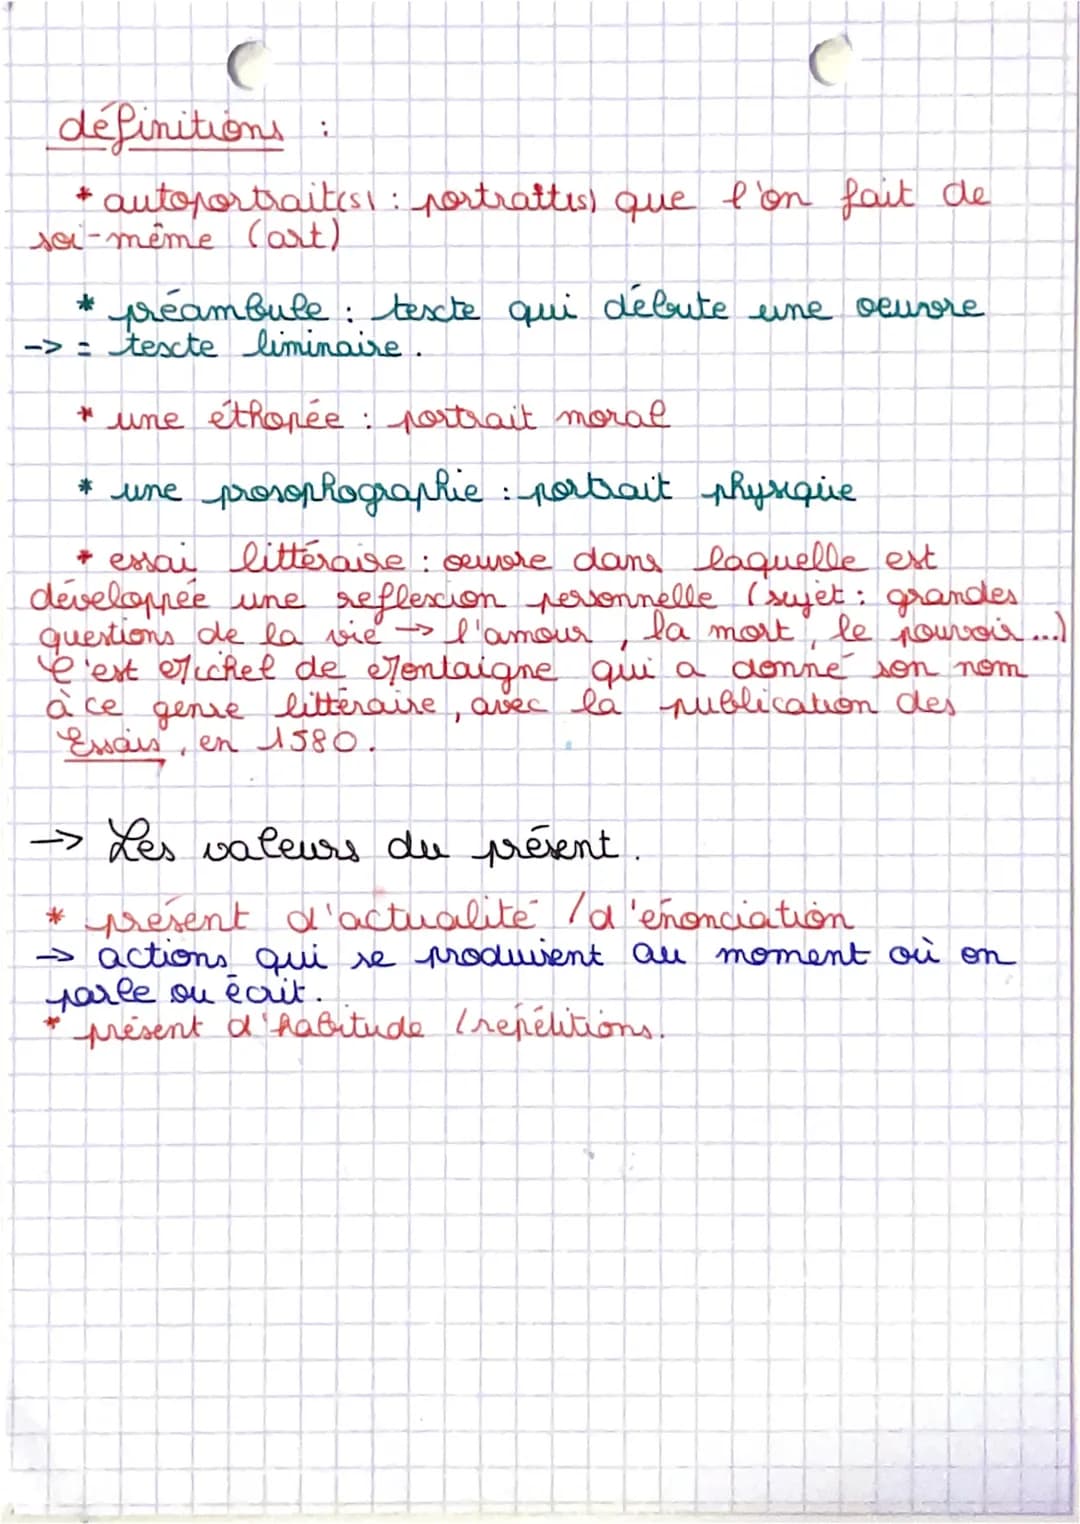 définitions :
* autoportrait(s) : portrait(s) que l'on fait de
soi-même (art)
* préambule : texte qui débute une oeuvre
-> = texte liminaire.
* une éthopée : portrait moral
* une prosophographie : portrait physique
* essai littéraire : oeuvre dans laquelle est
développée une reflexion personnelle (sujet : grandes
questions de la vie -> l'amour, la mort, le pouvoir...)
C'est Michel de Montaigne qui a donné son nom
à ce genre littéraire, avec la publication des
Essais, en 1580.
-> Les valeurs du présent.
* présent d'actualité /d'énonciation
-> actions qui se produisent au moment où on
parle ou écrit.
* présent d'habitude /répétitions.